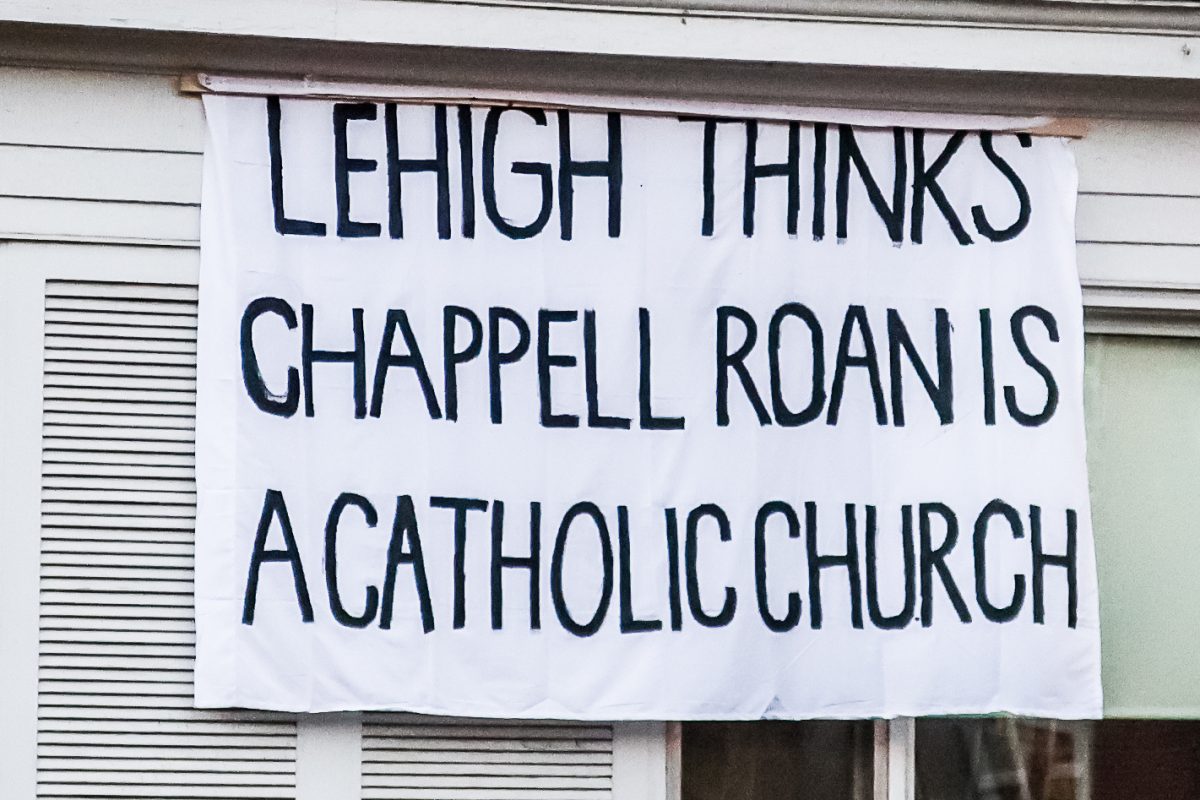 LEHIGH THINKS
CHAPPELL ROAN IS
A CATHOLIC CHURCH